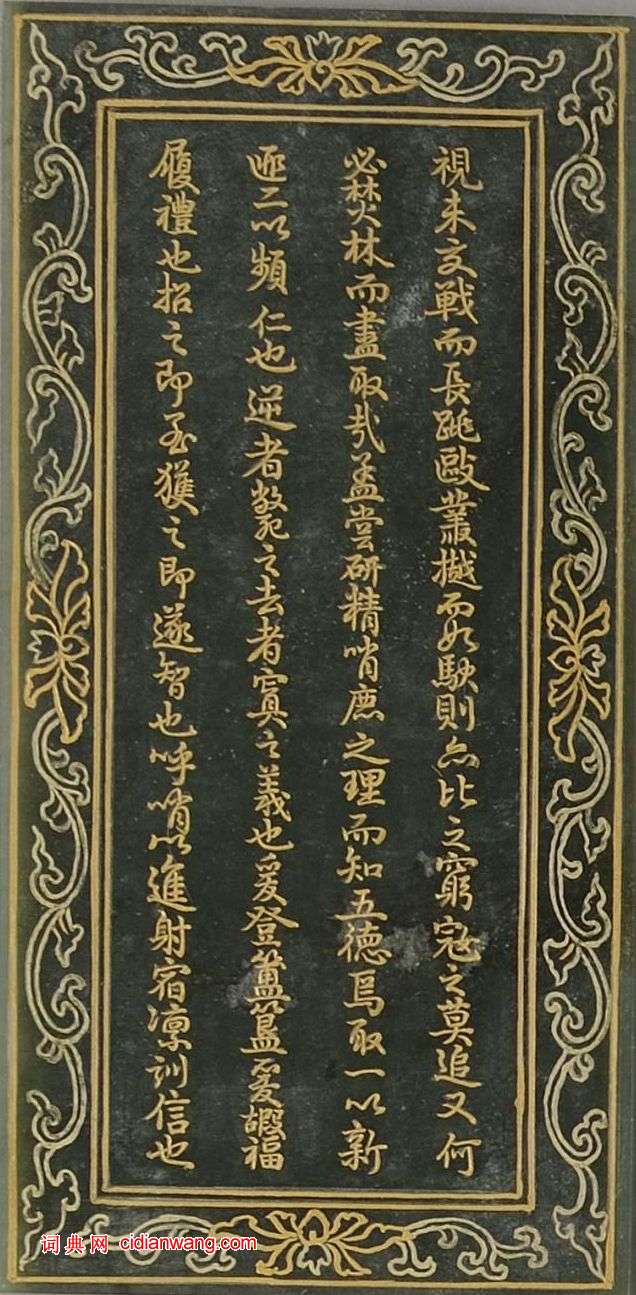 視未交戰而長跳毆叢樾而如駃則亦比之窮寇之莫追又何
必焚林而盡取哉盖嘗研精哨鹿之理而知五德焉取一以新
二以頻仁也逆者斃之去者寘之義也爰登簠簋爰嘏福
履禮也招之即至獲之即遂智也呼哨以進射宿凛訓信也
词典网 cidianwang.com